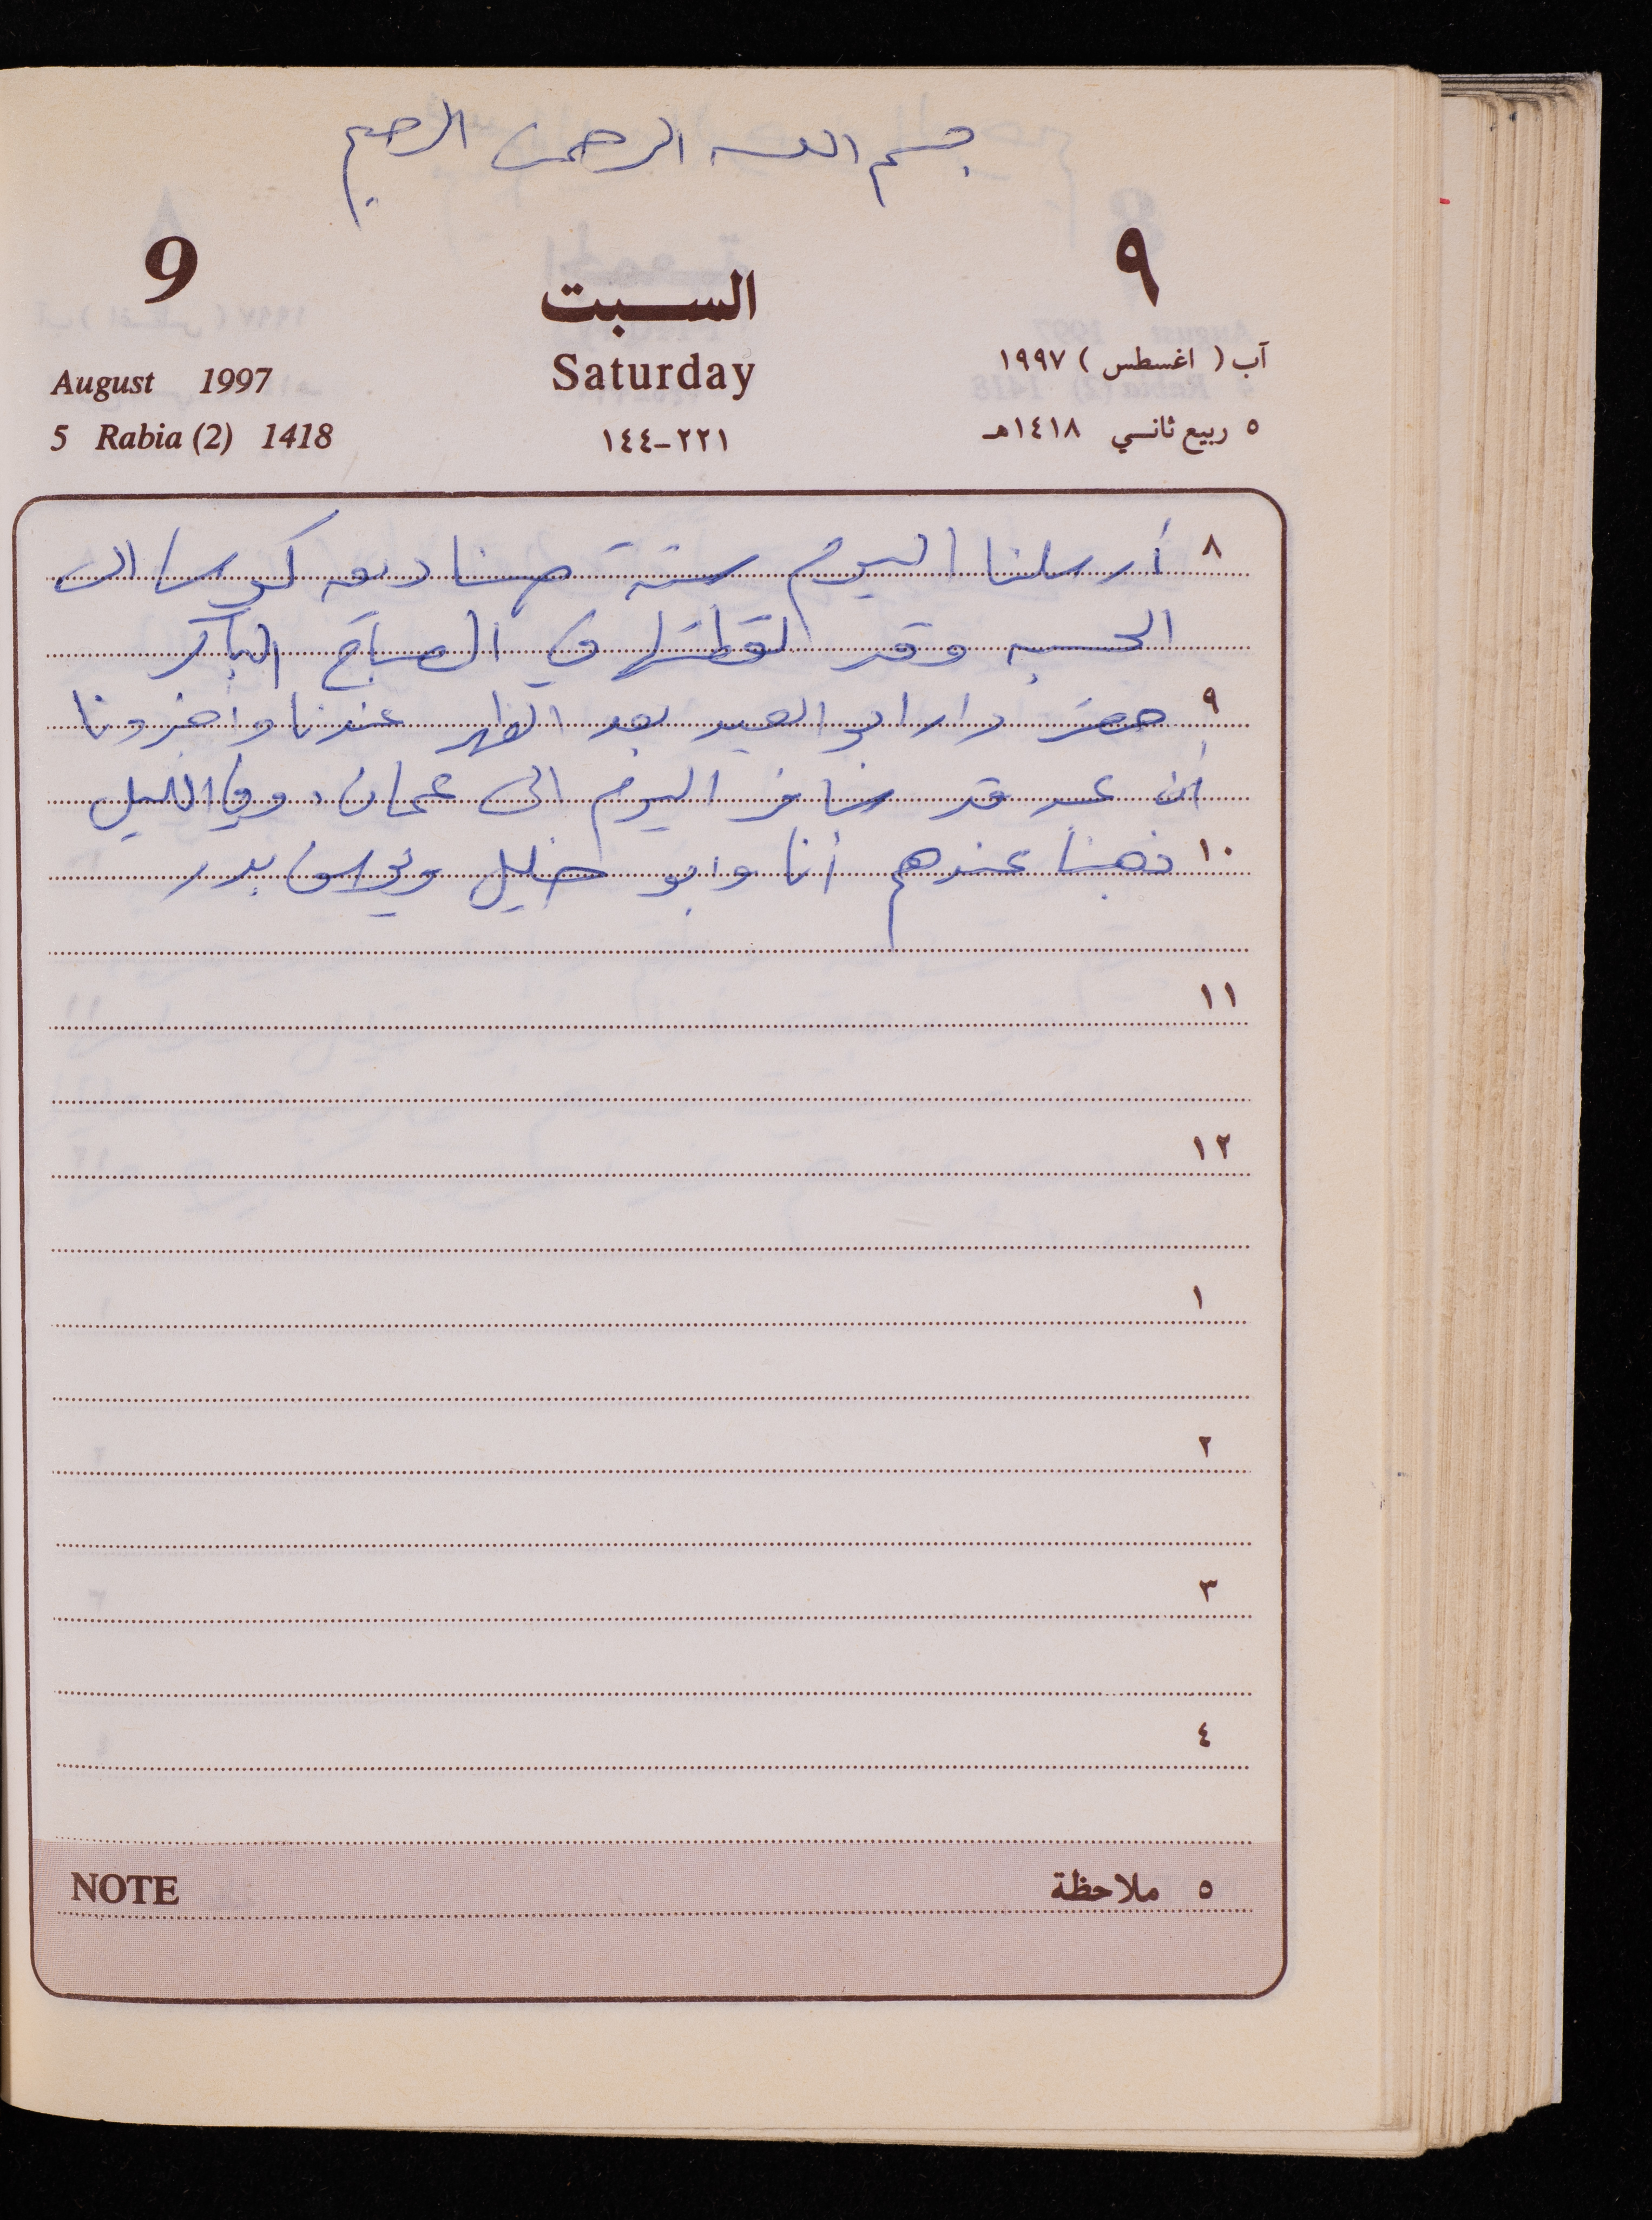 بسم الله الرحمن الرحيم
9 السبت ٩
Saturday
August 1997 آب ( اغسطس ) ١٩٩٧
5 Rabia (2) 1418 ٢٢١-١٤٤ ٥ ربيع ثاني ١٤١٨هـ
٨ أرسلنا اليوم ستة صناديق كوسا الى
الحسبه وقد لقطتها في الصباح الباكر
٩ حضر دار ابو العبد بعد الظهر عندنا واخبرونا
أن قد سافر اليوم الى عمان. وفي الليل
١٠ ذهبنا عندهم أنا وابو خليل بدر
١١
١٢
١
٢
٣
٤
NOTE ٥ ملاحظة